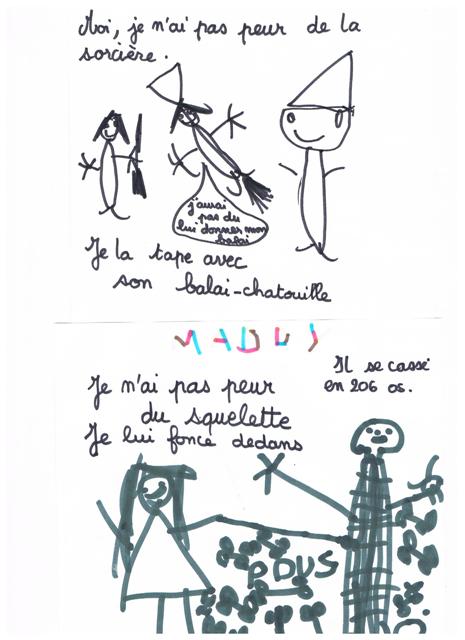 Moi, je n'ai pas peur de la
sorcière.
j'aurai
pas du
lui donner mon
balai
Je la tape avec
son balai-chatouille
Je n'ai pas peur
du squelette
Je lui fonce dedans
Il se casse
en 206 os.